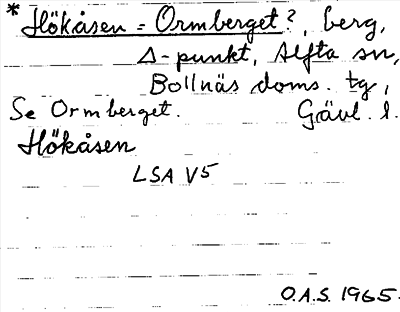 * Hökåsen = Ormberget?, berg,
Δ-punkt, Alfta sn,
Bollnäs doms. tg,
Se Ormberget. Gävl. l.
Hökåsen
LSA V5
O.A.S. 1965.